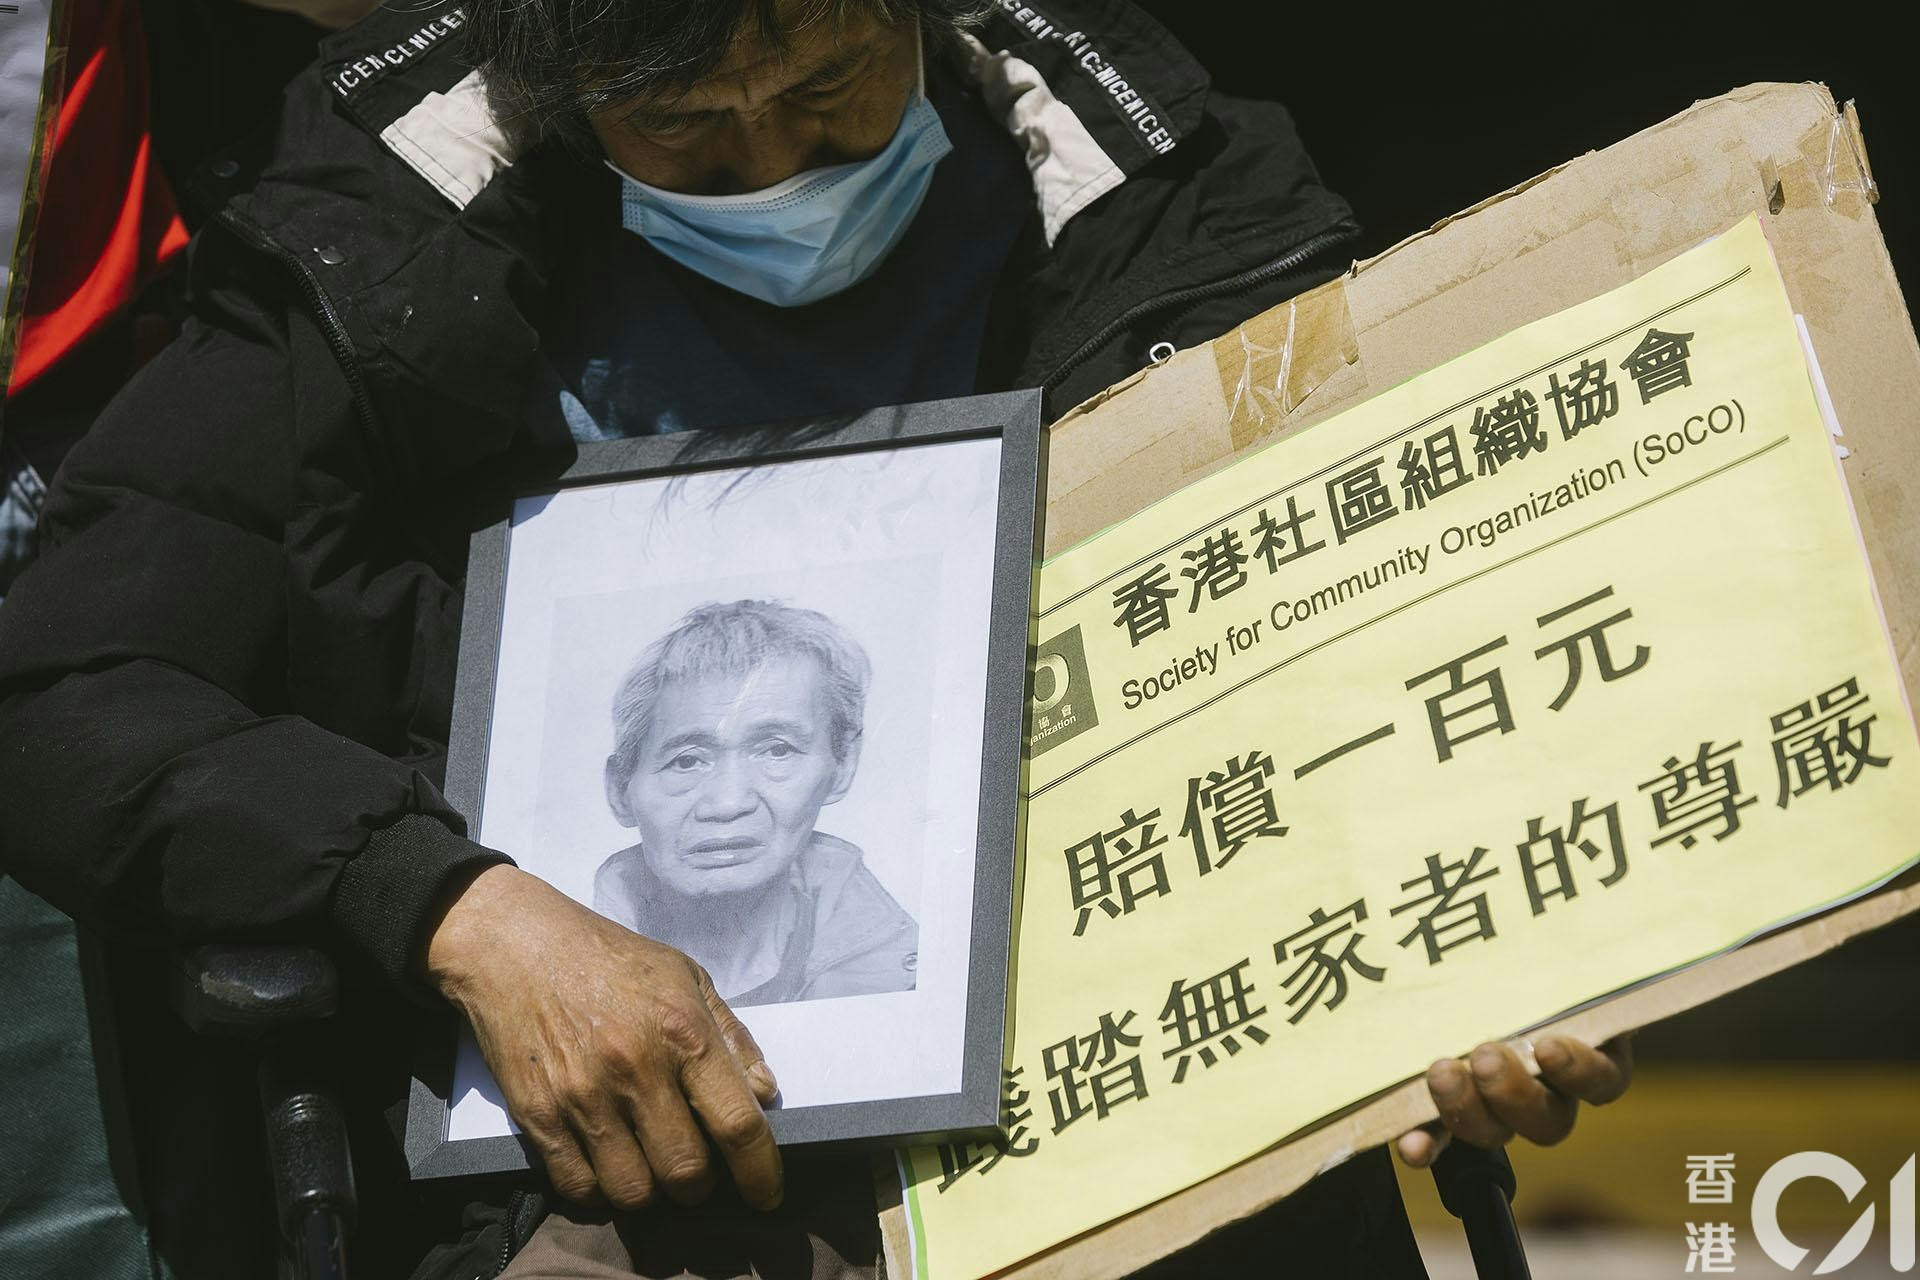 ICENICENICE
NICENICENICEN
香港社區組織協會
Society for Community Organization (SoCO)
協會
ganization
賠償一百元
踐踏無家者的尊嚴
香港01